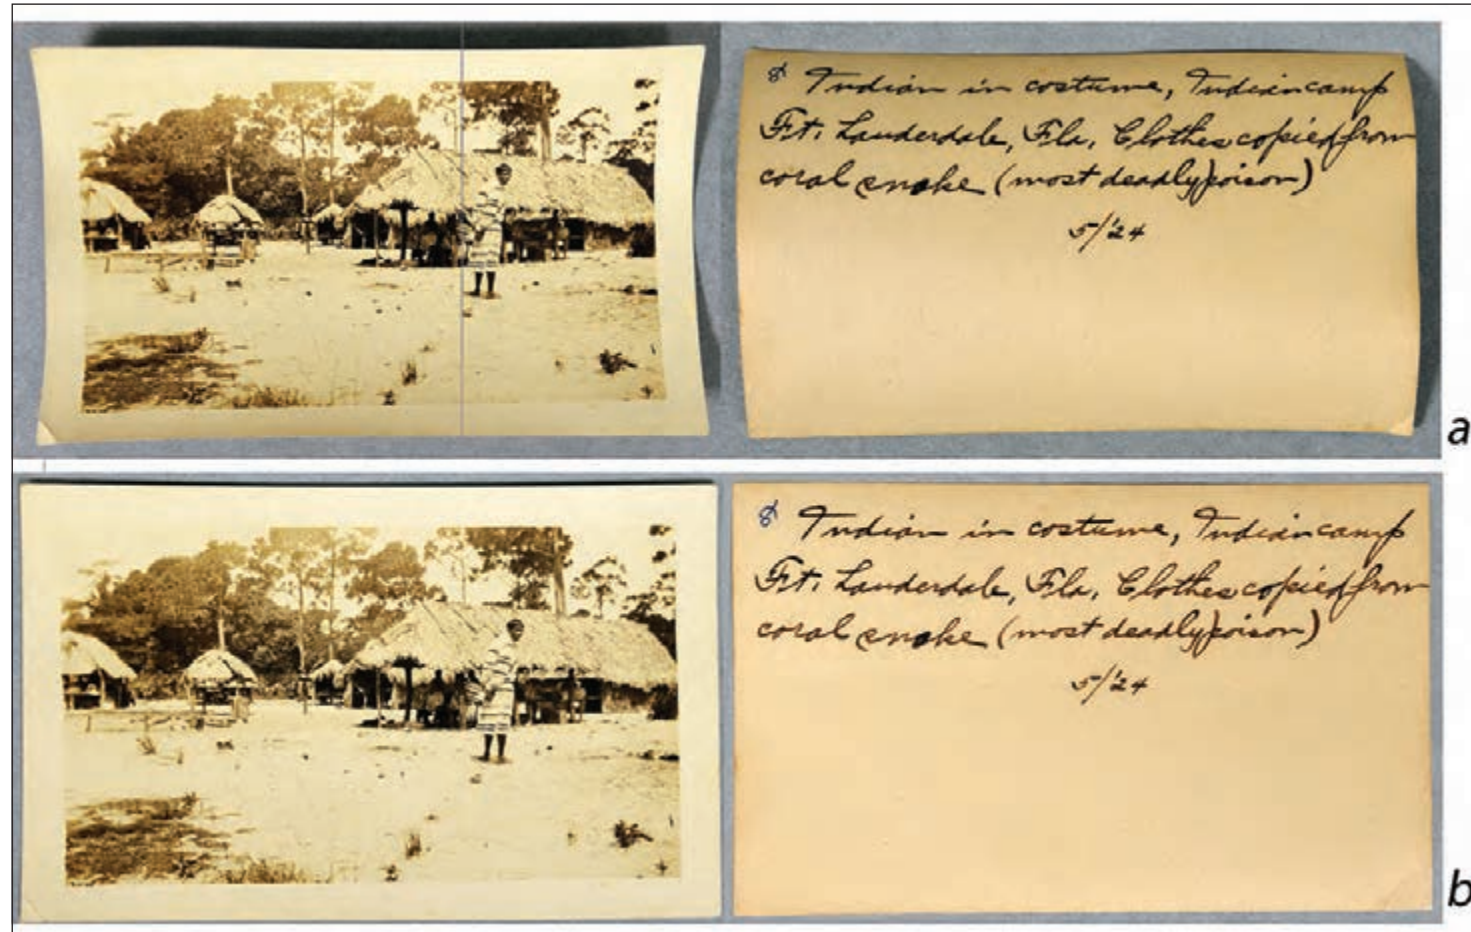 Indian in costume, Indian camp
Ft. Lauderdale, Fla. Clothes copied from
coral snake (most deadly poison)
5/'24
a
Indian in costume, Indian camp
Ft. Lauderdale, Fla. Clothes copied from
coral snake (most deadly poison)
5/'24
b